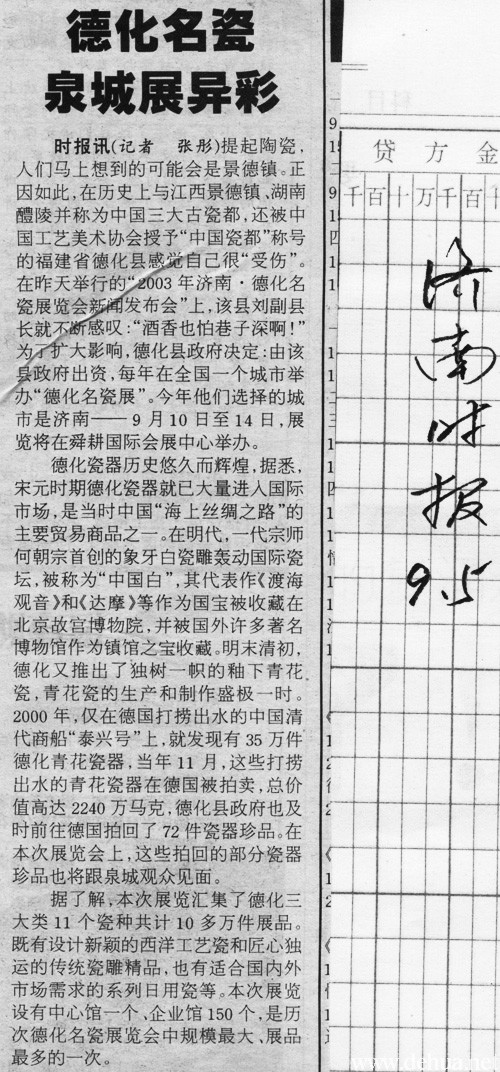 德化名瓷
泉城展异彩
时报讯(记者 张彤)提起陶瓷,
人们马上想到的可能会是景德镇。正
因如此,在历史上与江西景德镇、湖南
醴陵并称为中国三大古瓷都,还被中
国工艺美术协会授予“中国瓷都”称号
的福建省德化县感觉自己很“受伤”。
在昨天举行的“2003年济南·德化名
瓷展览会新闻发布会”上,该县刘副县
长就不断感叹:“酒香也怕巷子深啊!”
为了扩大影响,德化县政府决定:由该
县政府出资,每年在全国一个城市举
办“德化名瓷展”。今年他们选择的城
市是济南——9月10日至14日,展
览将在舜耕国际会展中心举办。
德化瓷器历史悠久而辉煌,据悉,
宋元时期德化瓷器就已大量进入国际
市场,是当时中国“海上丝绸之路”的
主要贸易商品之一。在明代,一代宗师
何朝宗首创的象牙白瓷雕轰动国际瓷
坛,被称为“中国白”,其代表作《渡海
观音》和《达摩》等作为国宝被收藏在
北京故宫博物院,并被国外许多著名
博物馆作为镇馆之宝收藏。明末清初,
德化又推出了独树一帜的釉下青花
瓷,青花瓷的生产和制作盛极一时。
2000年,仅在德国打捞出水的中国清
代商船“泰兴号”上,就发现有35万件
德化青花瓷器,当年11月,这些打捞
出水的青花瓷器在德国被拍卖,总价
值高达2240万马克,德化县政府也及
时前往德国拍回了72件瓷器珍品。在
本次展览会上,这些拍回的部分瓷器
珍品也将跟泉城观众见面。
据了解,本次展览汇集了德化三
大类11个瓷种共计10多万件展品。
既有设计新颖的西洋工艺瓷和匠心独
运的传统瓷雕精品,也有适合国内外
市场需求的系列日用瓷等。本次展览
设有中心馆一个、企业馆150个,是历
次德化名瓷展览会中规模最大、展品
最多的一次。
贷方金
千百十万千百十
济
南
时
报
9.5
www.dehua.net